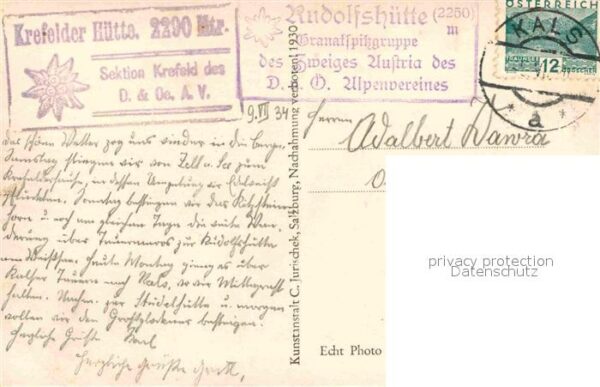 Krefelder Hütte. 2290 Mtr.
Sektion Krefeld des
D. & Oe. A. V.
Rudolfshütte (2250)
m
Granatspitzgruppe
des Zweiges Austria des
D. u. Ö. Alpenvereines
ÖSTERREICH
12
KALS
a
9. VII 34
Herrn
Adalbert Dawra
das schöne Wetter zog uns wieder in die Berge.
Samstag stiegen wir von Zell a. See zum
Krefelderhaus, in dessen Umgebung wir Edelweiß
pflückten. Sonntag bestiegen wir das Kitzstein-
horn u. noch am gleichen Tage die weite Wan-
derung über zur Rudolfshütte
am Weißsee. Heute Montag ging es über
Kalser Tauern nach Kals, wo wir Mittagsrast
halten. Nachm. zur Stüdlhütte u. morgen
wollen wir den Großglockner besteigen.
Herzliche Grüße Karl
Herzliche Grüße
Kunstanstalt C. Jurischek, Salzburg, Nachahmung verboten! 1930
Echt Photo
privacy protection
Datenschutz